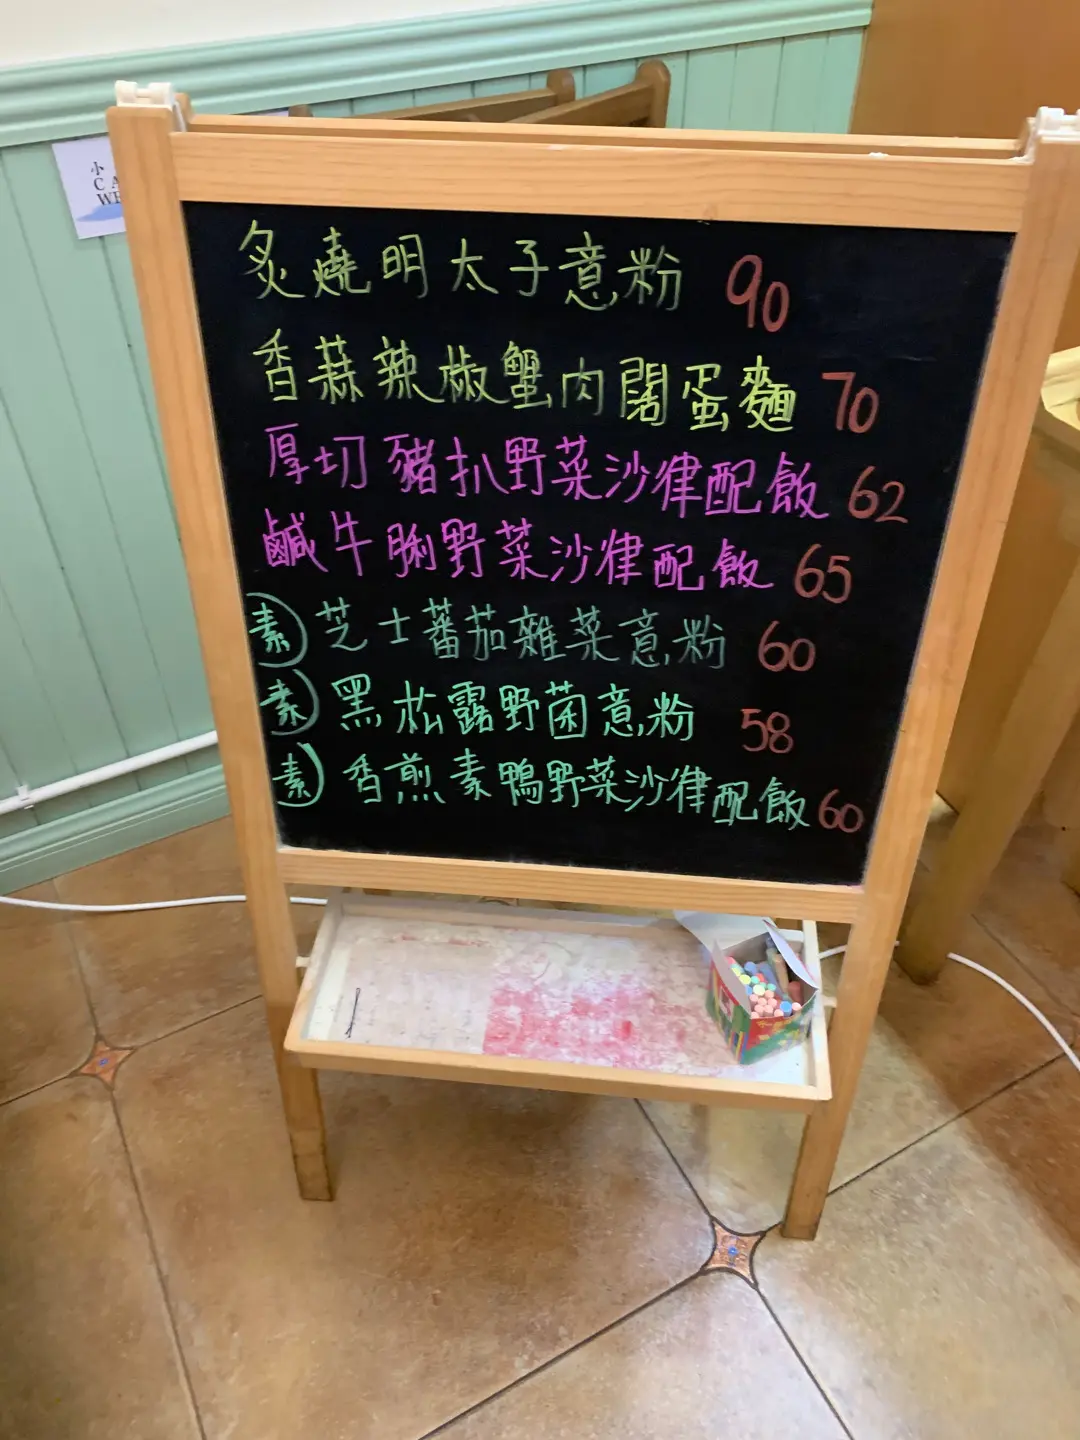 小
C A
WE
炙燒明太子意粉 90
香蒜辣椒蟹肉闊蛋麵 70
厚切豬扒野菜沙律配飯 62
鹹牛脷野菜沙律配飯 65
素) 芝士蕃茄雜菜意粉 60
素) 黑松露野菌意粉 58
素) 香煎素鴨野菜沙律配飯 60